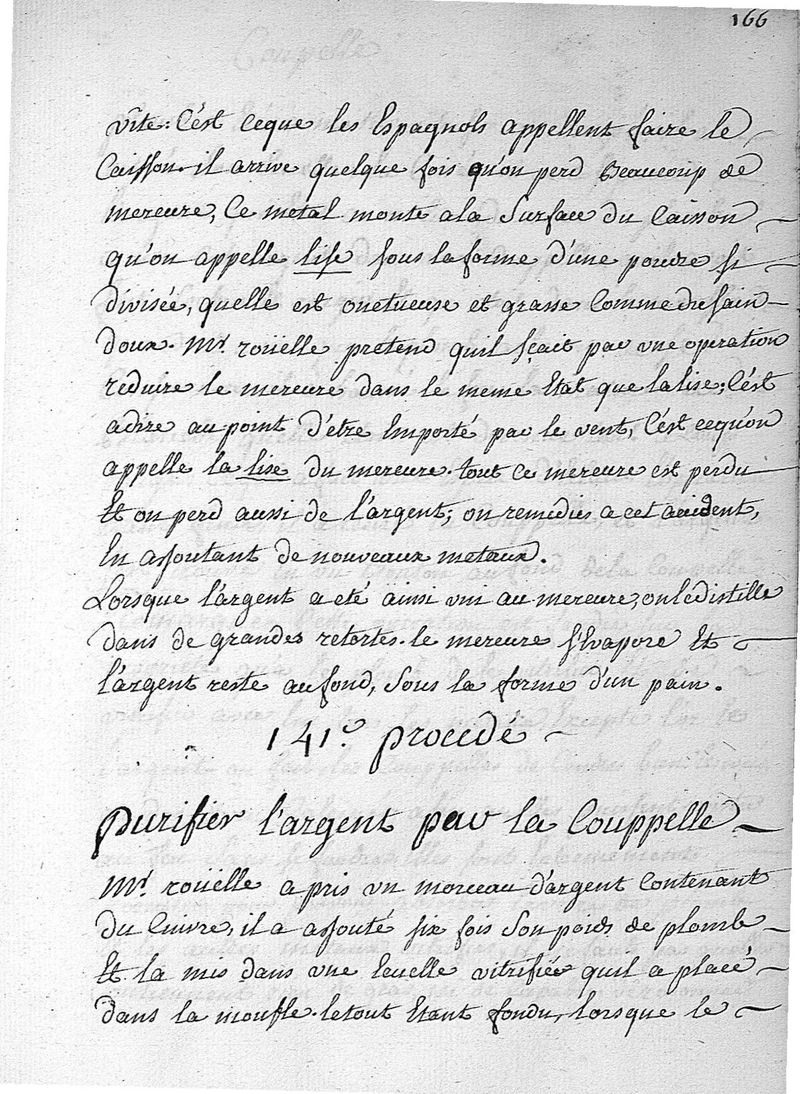 166
vîte: C'est ceque les Espagnols appellent faire le
Caisson. il arrive quelque fois qu'on perd Beaucoup de
mercure, Ce metal monte ala Surface du Caisson
qu'on appelle lise sous la forme d'une poudre si
divisée, quelle est onctueuse et grasse Comme du sain
doux. Mr. roüelle pretend quil sçait par une operation
réduire le mercure dans le meme Etat que la lise; C'est
adire au point d'etre Emporté par le vent, C'est cequ'on
appelle la lise du mercure. tout ce mercure est perdu
Et on perd aussi de l'argent; on remedie a cet accident,
En ajoutant de nouveaux metaux.
Lorsque l'argent a eté ainsi uni au mercure, on le distille
dans de grandes retortes. le mercure s'Evapore Et
l'argent reste au fond, Sous la forme d'un pain.
141.e procedé
Purifier l'argent par la Couppelle
Mr. roüelle a pris un morceau d'argent Contenant
du Cuivre, il a ajouté six fois Son poids de plomb
Et la mis dans une Ecuelle vitrifiée quil a placé
dans la moufle. letout Etant fondu, lorsque le